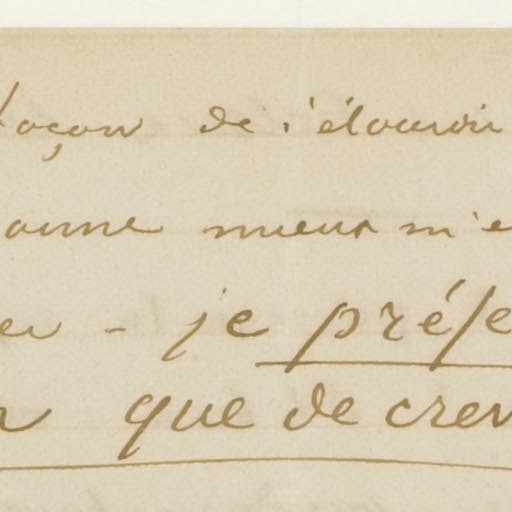 façon de s'étourdir
aime mieux m'e
er - je préfe
r que de crev